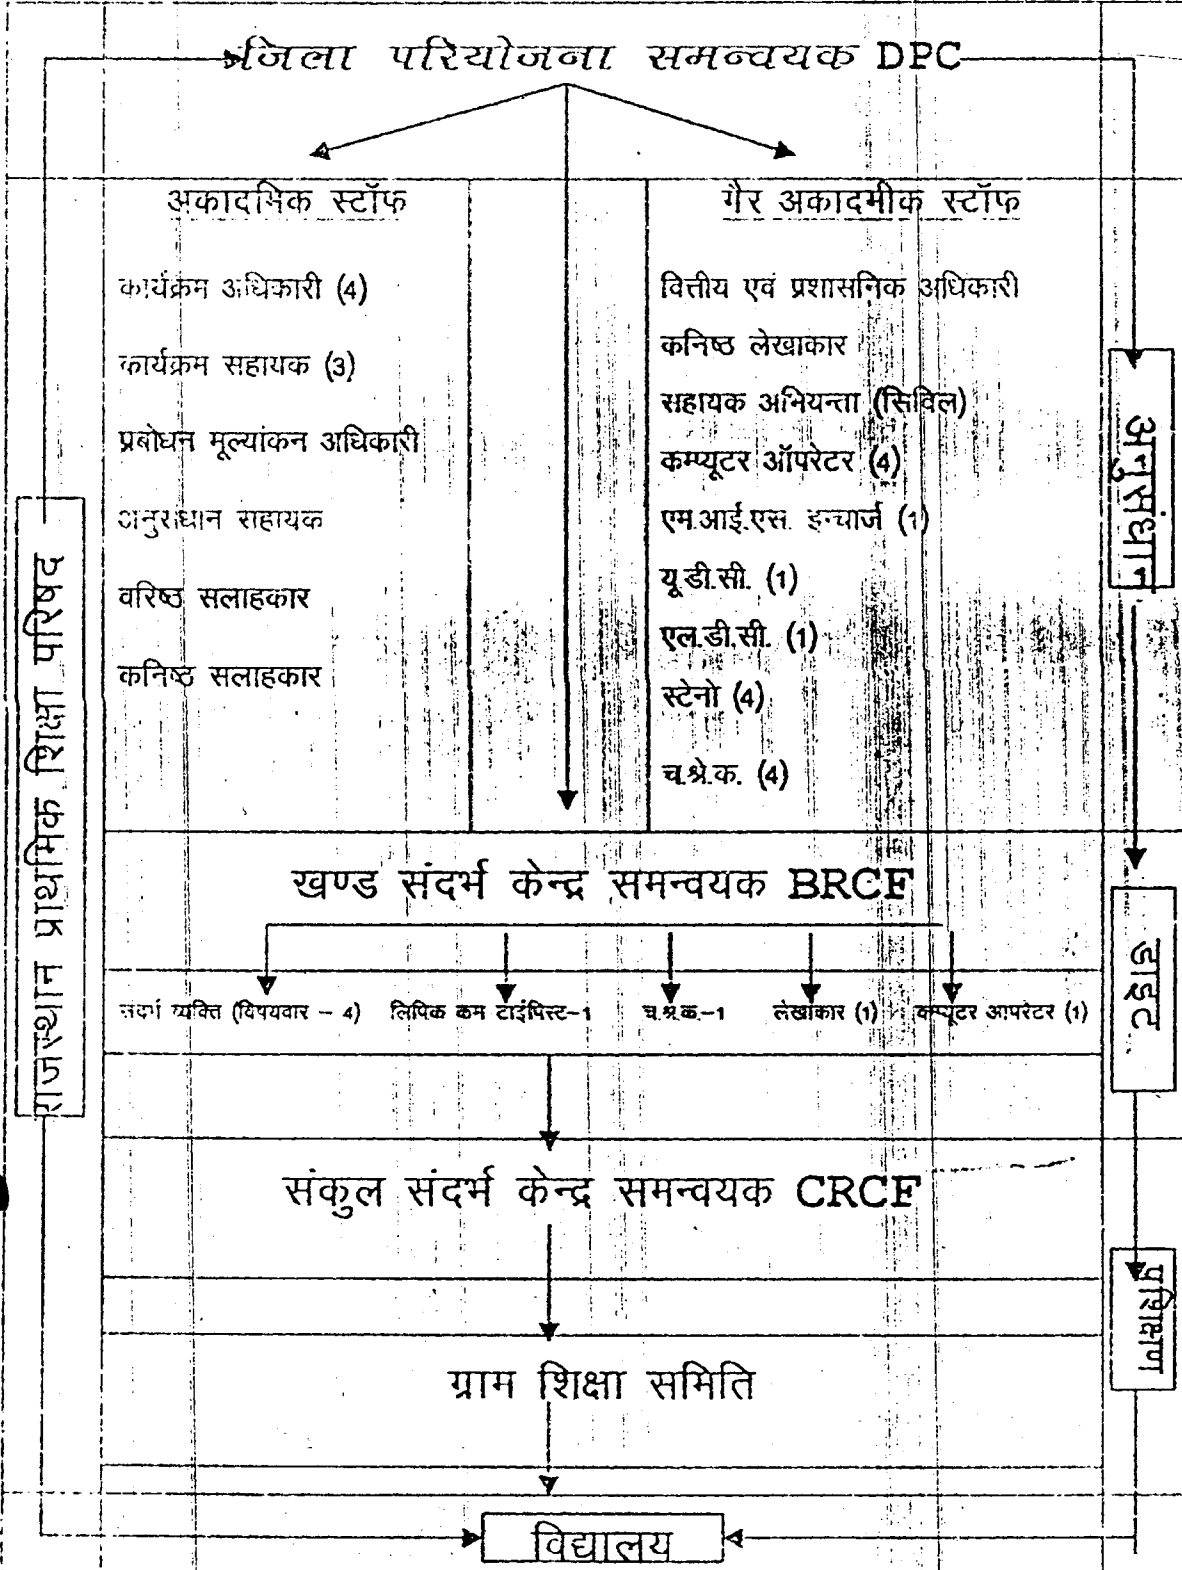 जिला परियोजना समन्वयक DPC
अकादमिक स्टॉफ
गैर अकादमीक स्टॉफ
कार्यक्रम अधिकारी (4)
कार्यक्रम सहायक (3)
प्रबोधन मूल्यांकन अधिकारी
अनुसंधान सहायक
वरिष्ठ सलाहकार
कनिष्ठ सलाहकार
वित्तीय एवं प्रशासनिक अधिकारी
कनिष्ठ लेखाकार
सहायक अभियन्ता (सिविल)
कम्प्यूटर ऑपरेटर (4)
एम.आई.एस. इन्चार्ज (1)
यू.डी.सी. (1)
एल.डी.सी. (1)
स्टेनो (4)
च.श्रे.क. (4)
राजस्थान प्राथमिक शिक्षा परिषद
अनुसंधान
डाइट
प्रशिक्षण
खण्ड संदर्भ केन्द्र समन्वयक BRCF
संदर्भ व्यक्ति (विषयवार – 4) लिपिक कम टाईपिस्ट-1 च.श्र.क.-1 लेखाकार (1) कम्प्यूटर आपरेटर (1)
संकुल संदर्भ केन्द्र समन्वयक CRCF
ग्राम शिक्षा समिति
विद्यालय